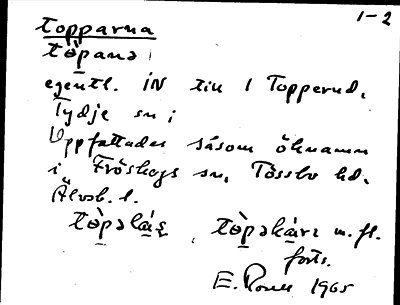 1-2
Topparna
tòpana
egentl. iN till 1 Topperud,
Tydje sn;
Uppfattades såsom öknamn
i Fröskogs sn, Tössbo hd.
Älvsb. l.
tòpəkáʀ, tòpəkáʀɪ m. fl.
forts.
E. 1965